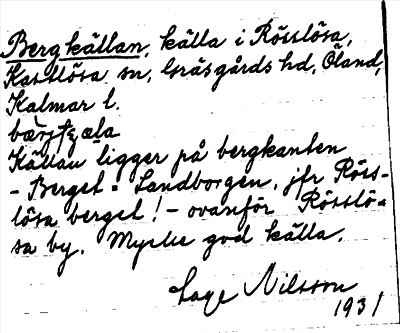 Bergkällan, källa i Rösslösa,
Kastlösa sn, Gräsgårds hd, Öland,
Kalmar l.
Källan ligger på bergkanten
- Berget = Landborgen, jfr Röss-
lösa berget! - ovanför Rösslö-
sa by. Mycke god källa.
Lage Nilsson
1931